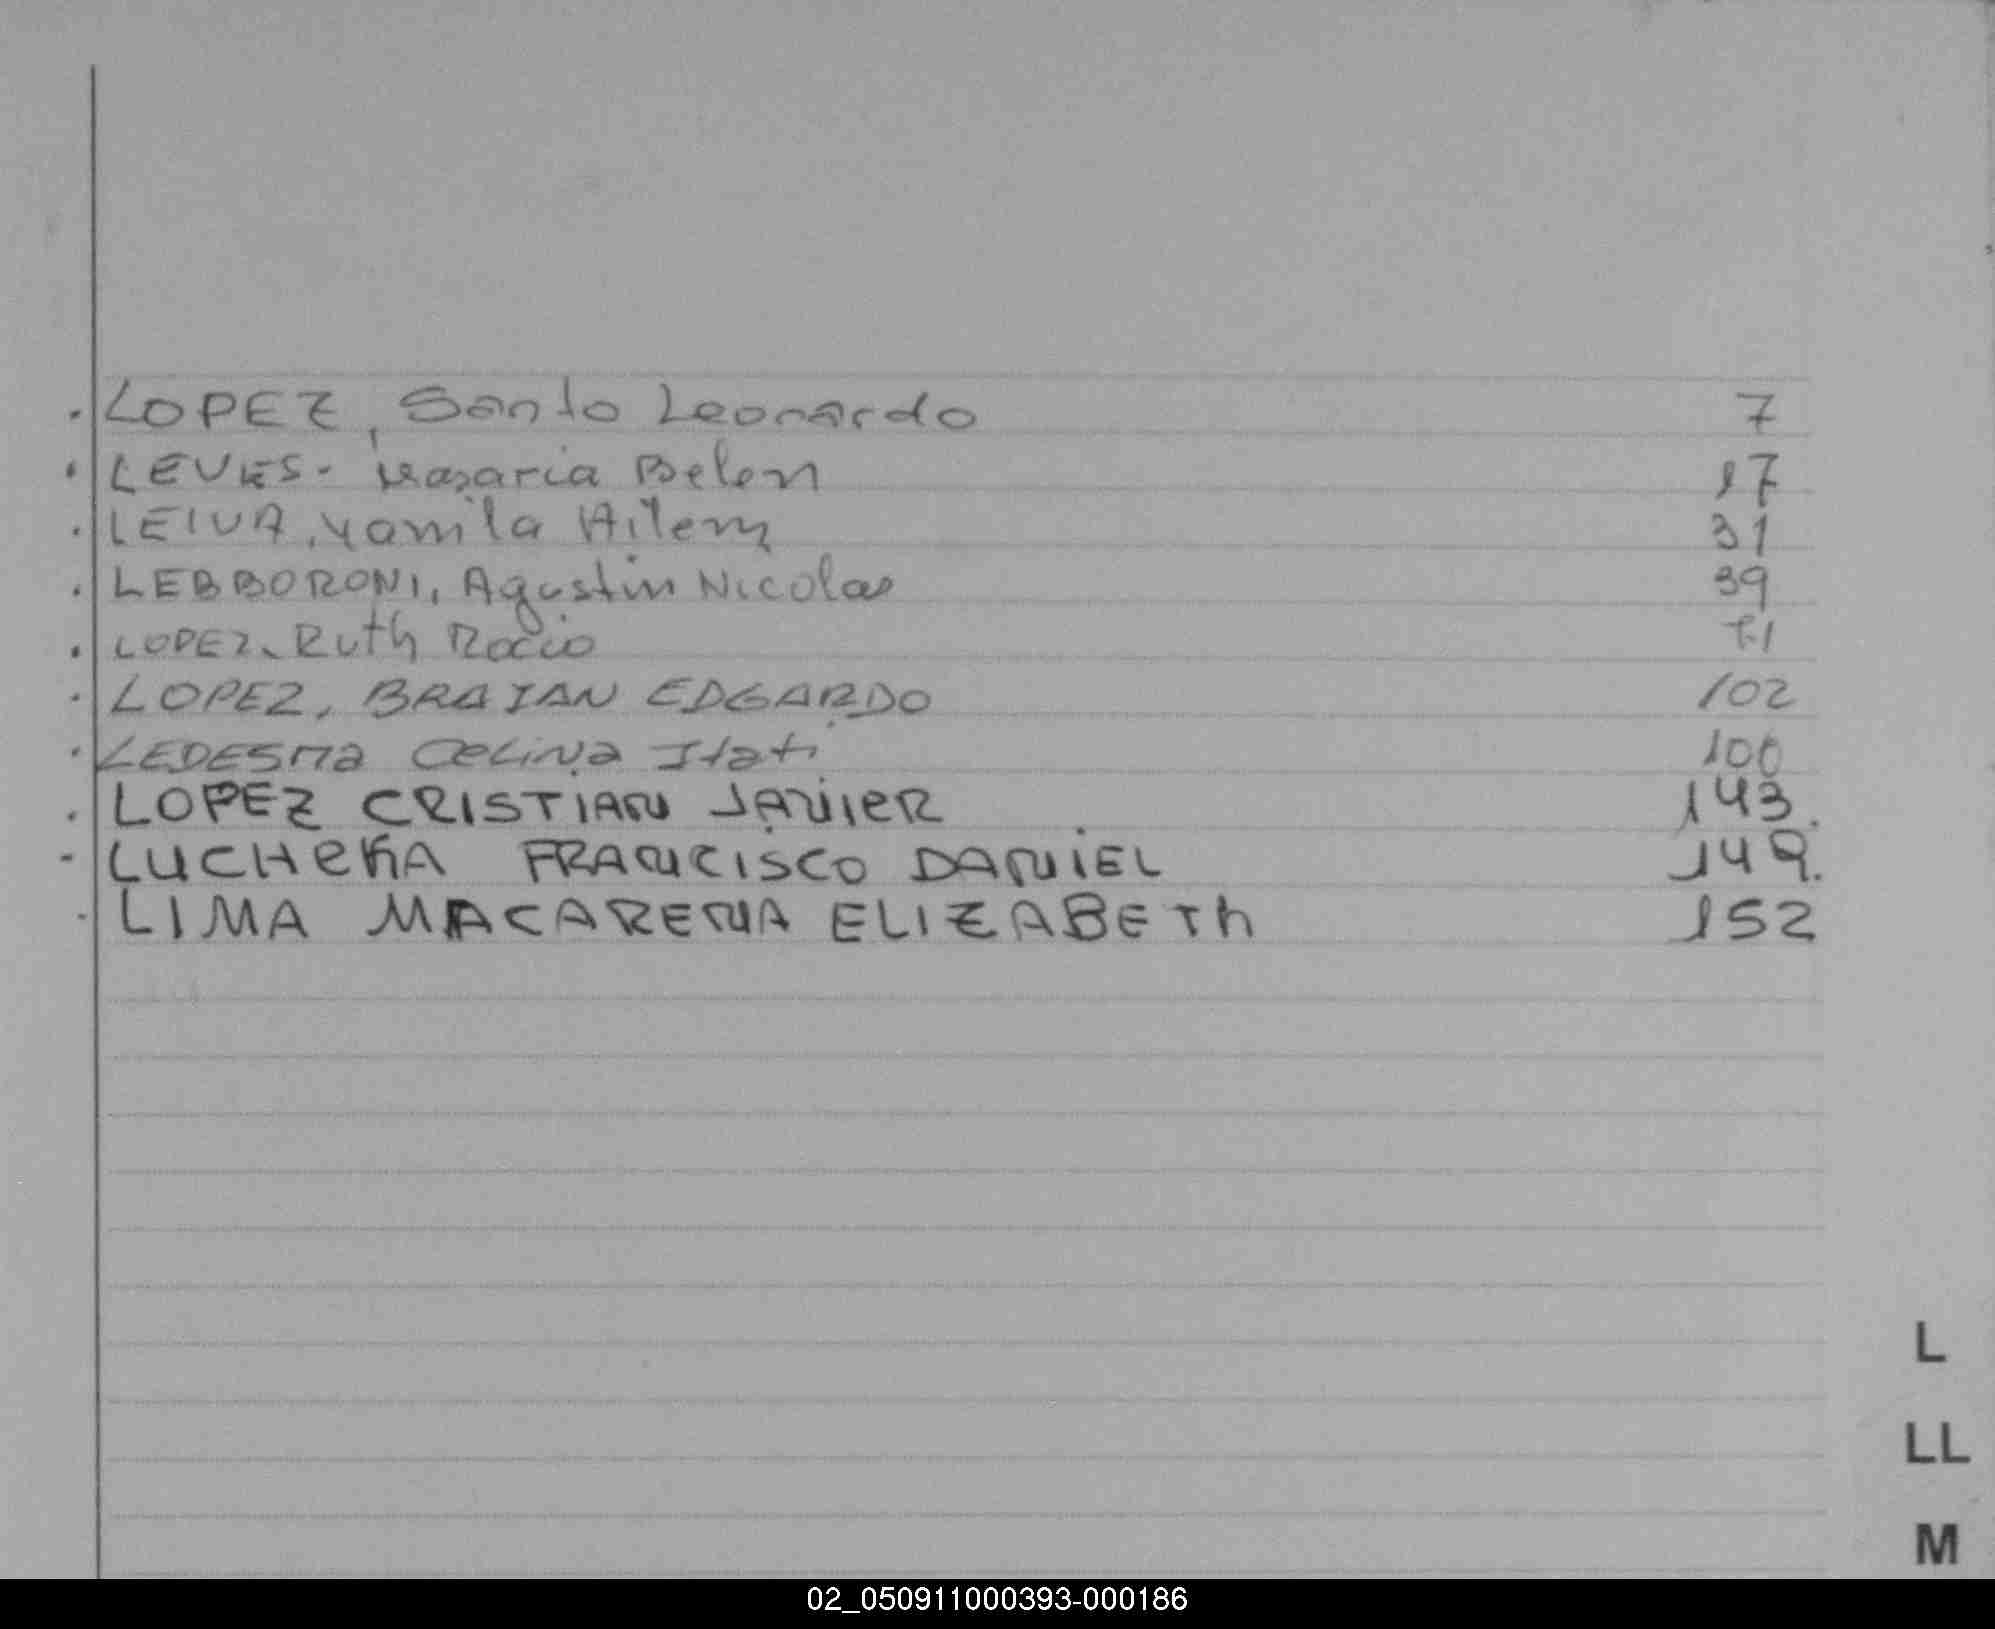 . LOPEZ, Santo Leonardo 7
. LEVES- Belen 17
. LEIVA, Yamila Ailem 31
. LEBBORONI, Agustin Nicolas 39
. LOPEZ, Ruth Rocio 71
. LOPEZ, BRAIAN EDGARDO 102
. LEDESMA Celina Itati 106
. LOPEZ CRISTIAN JAVIER 143.
- FRANCISCO DANIEL 149.
. LIMA MACARENA ELIZABETh 152
L
LL
M
02_050911000393-000186